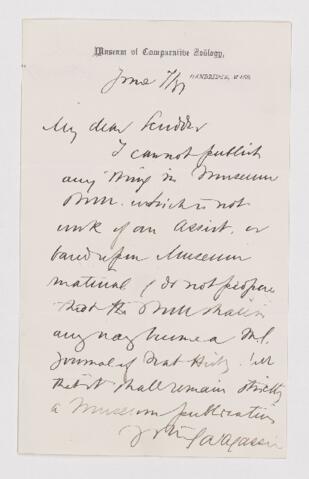 Museum of Comparative Zoölogy,
CAMBRIDGE, MASS.
June 7/81
My dear Scudder
I cannot publish
any thing in Museum
Bull. which is not
work of an Assist. or
based upon Museum
material I do not propose
that the Bull shall in
any way become a
Journal of Nat Hist.
that it shall remain strictly
a Museum publication
Yrs A Agassiz